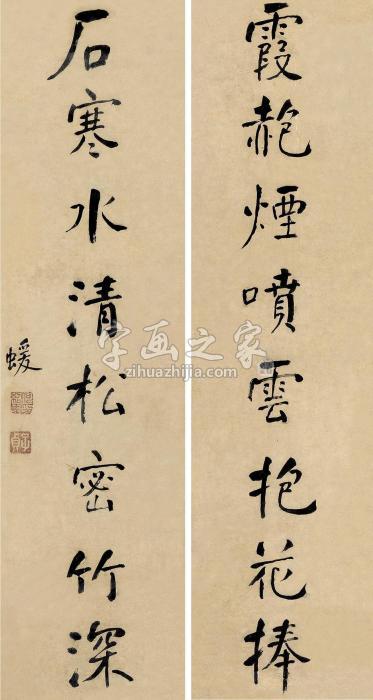 霞赩煙噴雲抱花捧
石寒水清松密竹深
蝯
子貞
字画之家
zihuazhijia.com